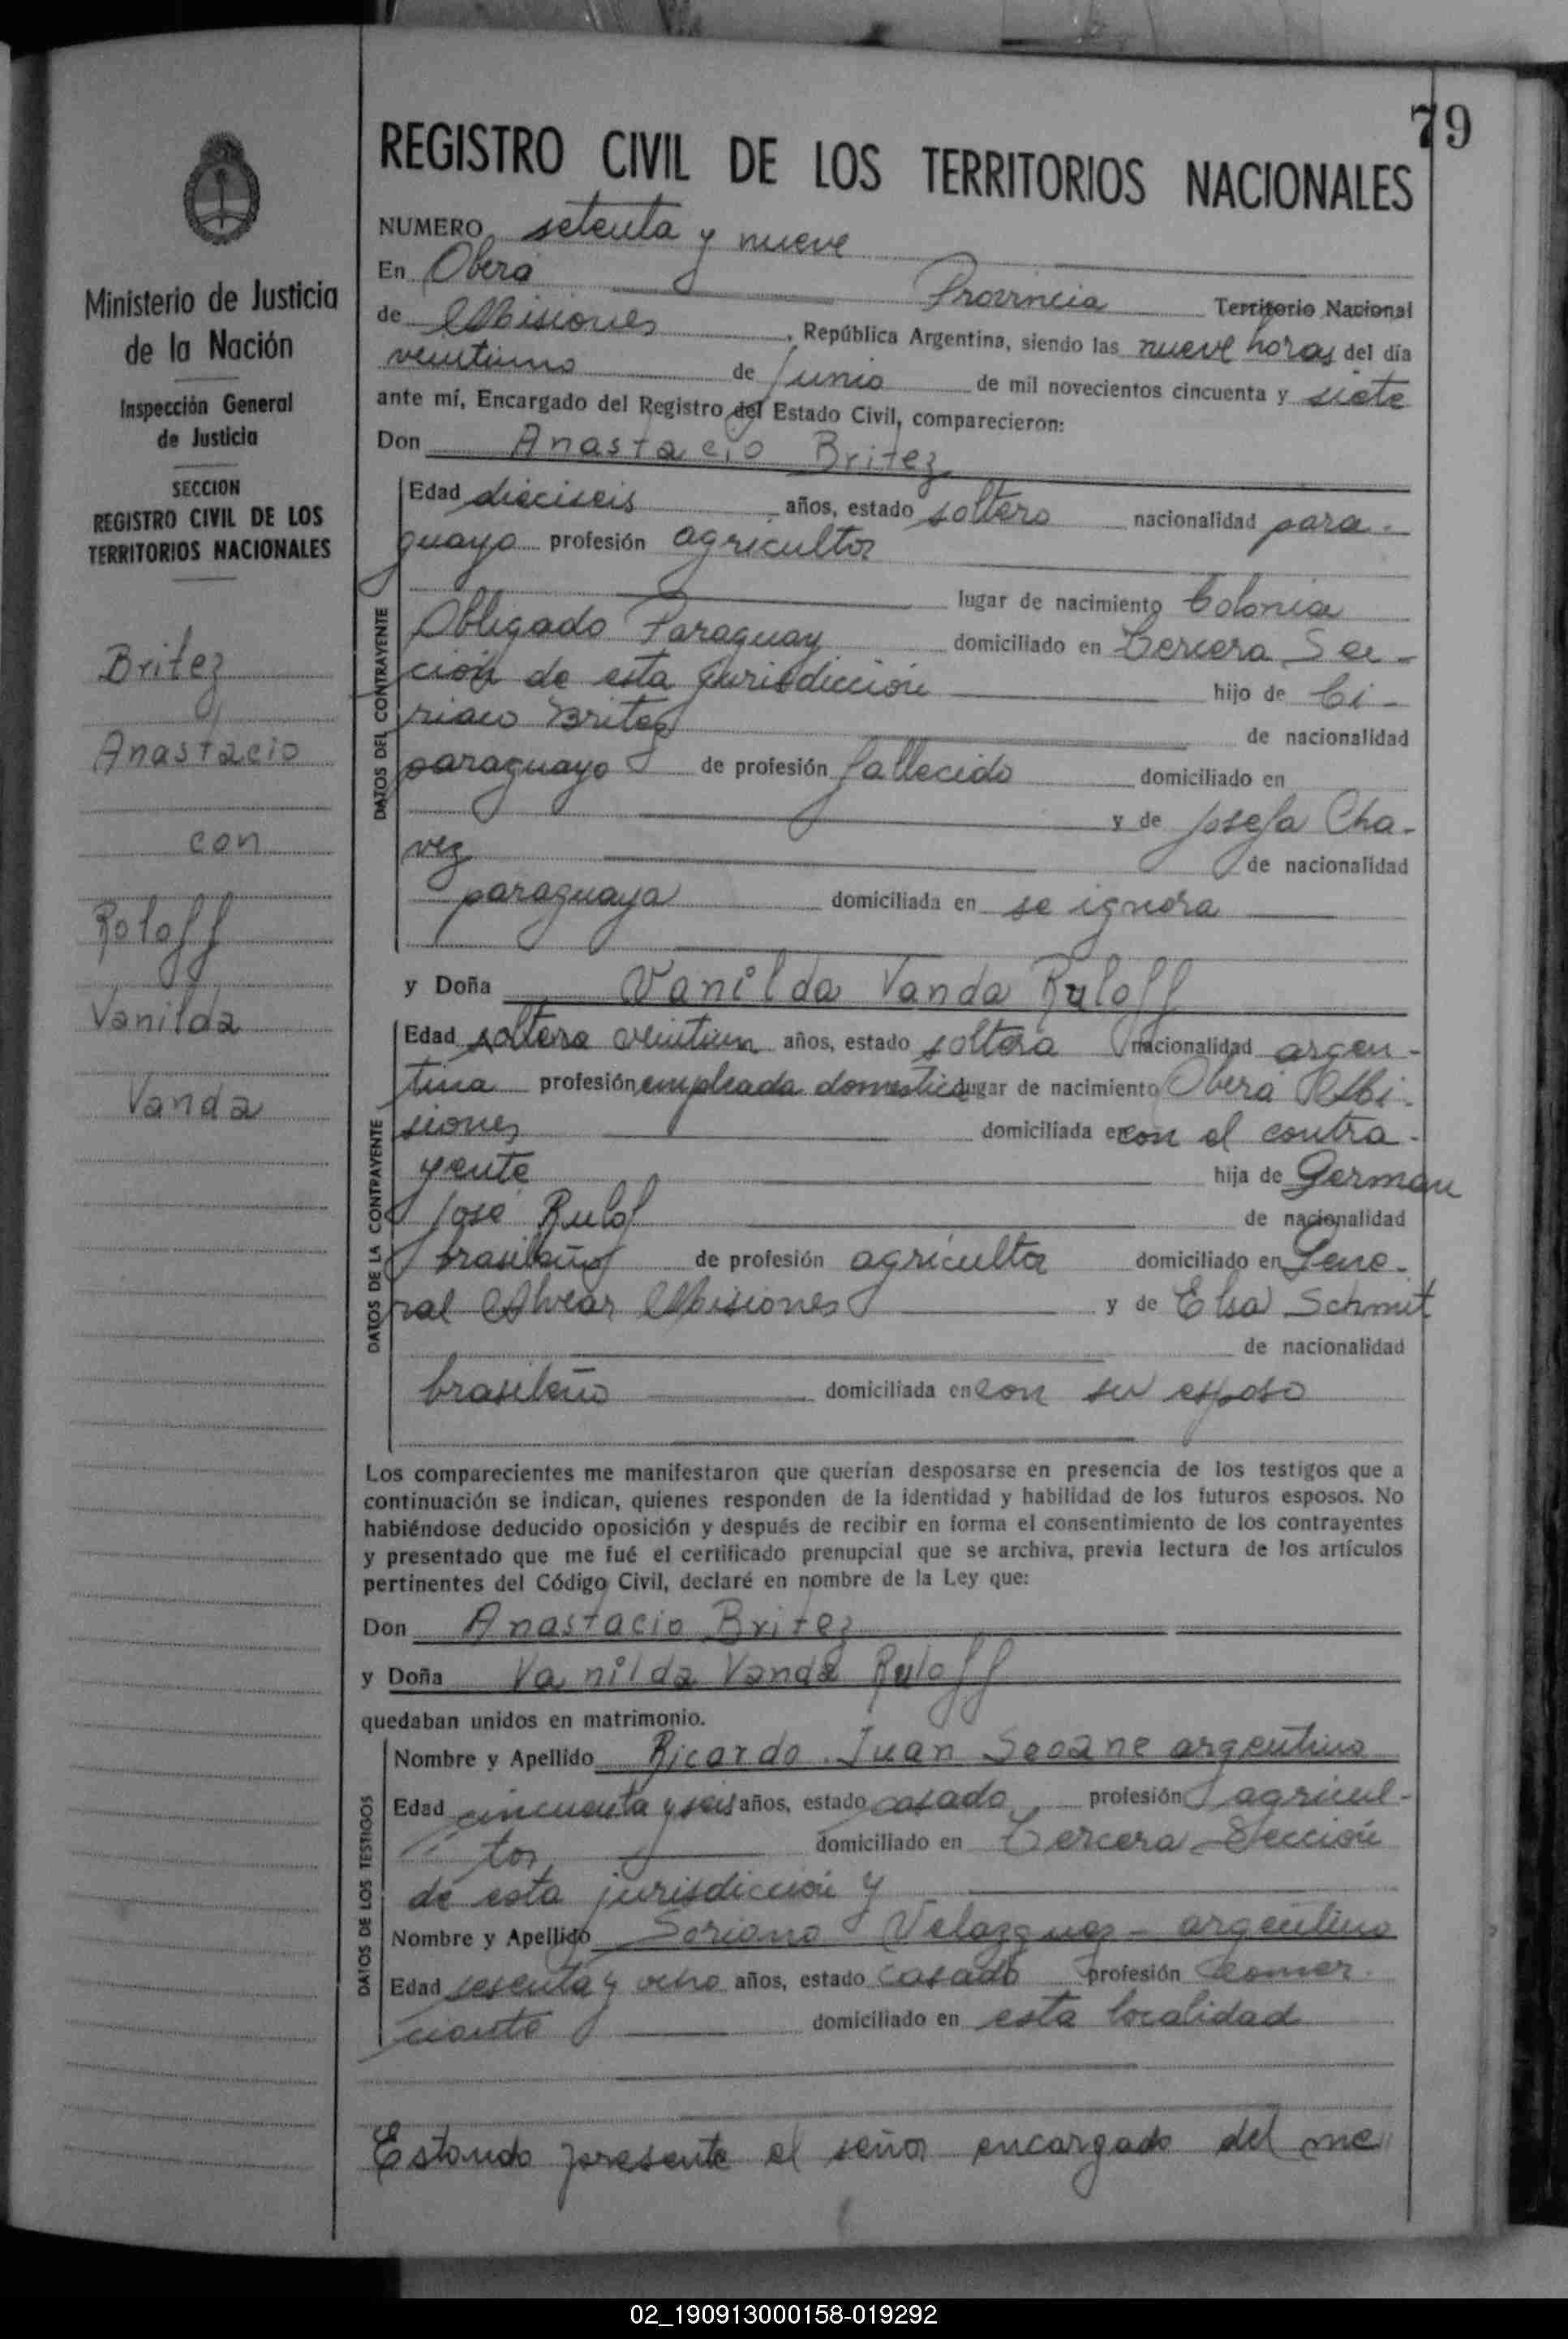 79
REGISTRO CIVIL DE LOS TERRITORIOS NACIONALES
NUMERO setenta y nueve
En Oberá Provincia Territorio Nacional
de Misiones, República Argentina, siendo las nueve horas del día
veintiuno de Junio de mil novecientos cincuenta y siete
ante mí, Encargado del Registro del Estado Civil, comparecieron:
Don Anastacio Britez
Edad dieciseis años, estado soltero nacionalidad para-
guayo profesión agricultor
lugar de nacimiento Colonia
Obligado Paraguay domiciliado en Tercera Sec-
ción de esta jurisdicción hijo de Ci-
riaco Britez de nacionalidad
paraguayo de profesión fallecido domiciliado en
y de Josefa Cha-
vez de nacionalidad
paraguaya domiciliada en se ignora
DATOS DEL CONTRAYENTE
y Doña Vanilda Vanda Ruloff
Edad soltera veintiun años, estado soltera nacionalidad argen-
tina profesión empleada domestica lugar de nacimiento Oberá Mi-
siones domiciliada en con el contra-
yente hija de German
José Rulof de nacionalidad
brasileño de profesión agricultor domiciliado en Gene-
ral Alvear Misiones y de Elsa Schmit
de nacionalidad
brasileño domiciliada en con su esposo
DATOS DE LA CONTRAYENTE
Los comparecientes me manifestaron que querían desposarse en presencia de los testigos que a
continuación se indican, quienes responden de la identidad y habilidad de los futuros esposos. No
habiéndose deducido oposición y después de recibir en forma el consentimiento de los contrayentes
y presentado que me fué el certificado prenupcial que se archiva, previa lectura de los artículos
pertinentes del Código Civil, declaré en nombre de la Ley que:
Don Anastacio Britez
y Doña Vanilda Vanda Ruloff
quedaban unidos en matrimonio.
Nombre y Apellido Ricardo Juan Seoane argentino
Edad cincuenta y seis años, estado casado profesión agricul-
tor domiciliado en Tercera Sección
de esta jurisdicción y
Nombre y Apellido Soriano Velazquez - argentino
Edad sesenta y ocho años, estado casado profesión comer-
ciante domiciliado en esta localidad
DATOS DE LOS TESTIGOS
Estando presente el señor encargado del me
Ministerio de Justicia
de la Nación
Inspección General
de Justicia
SECCION
REGISTRO CIVIL DE LOS
TERRITORIOS NACIONALES
Britez
Anastacio
con
Roloff
Vanilda
Vanda
02_190913000158-019292